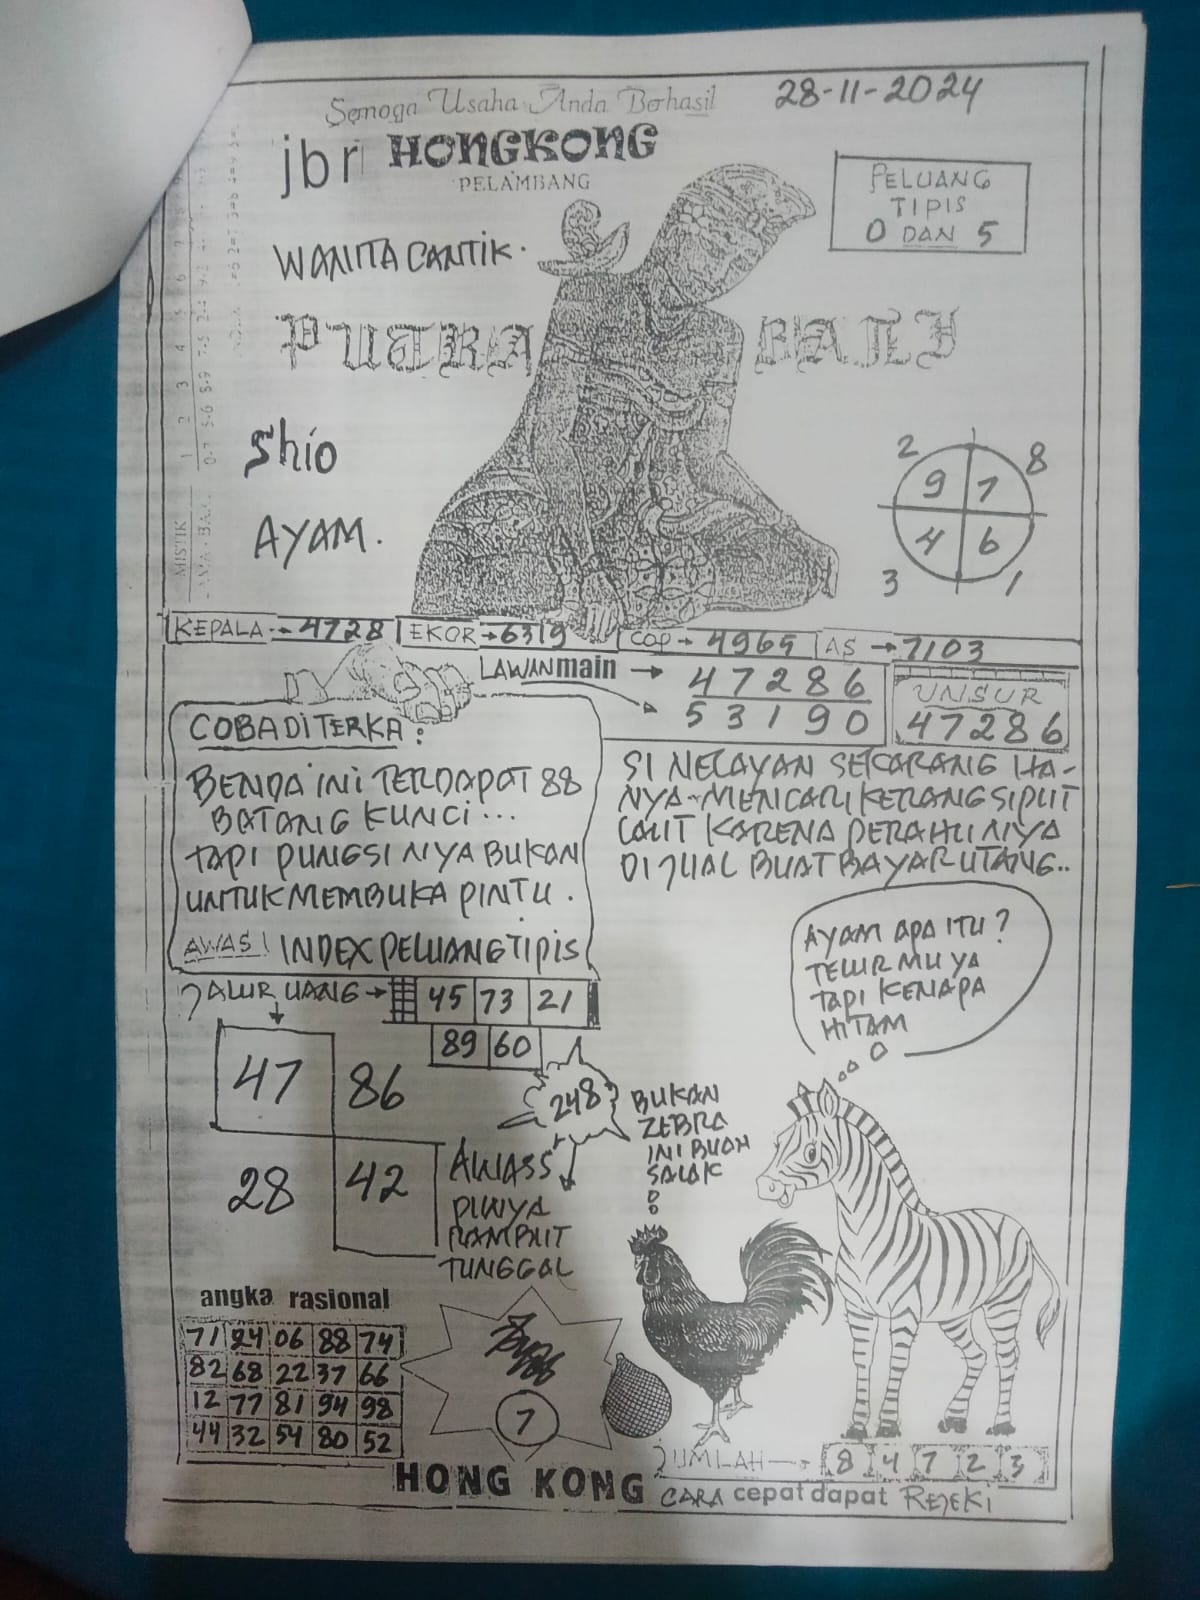 Semoga Usaha Anda Berhasil
28-11-2024
jbr HONGKONG
PELAMBANG
PELUANG
TIPIS
0 DAN 5
WANITA CANTIK.
PUTRA BALI
Shio
AYAM.
2 8
9 7
4 6
3 1
MISTIK
KEPALA → 4728 EKOR → 6319 COP → 4965 AS → 7103
LAWAN main → 47286
53190
UNSUR
47286
COBA DI TERKA :
BENDA INI TERDAPAT 88
BATANG KUNCI...
TAPI PUNGSI NYA BUKAN
UNTUK MEMBUKA PINTU.
AWAS! INDEX PELUANG TIPIS
SI NELAYAN SEKARANG HA-
NYA-MENCARI KERANG SIPUT
LAUT KARENA PERAHU NYA
DI JUAL BUAT BAYAR UTANG..
JALUR UANG → 45 73 21
89 60
47 86
28 42
248
AWASS
PUNYA
RAMBUT
TUNGGAL
AYAM APA ITU?
TELUR MU YA
TAPI KENAPA
HITAM
BUKAN
ZEBRA
INI BUAH
SALAK
angka rasional
71 24 06 88 74
82 68 22 37 66
12 77 81 94 98
44 32 54 80 52
7
JUMLAH → 8 4 7 2 3
HONG KONG CARA cepat dapat REJEKI